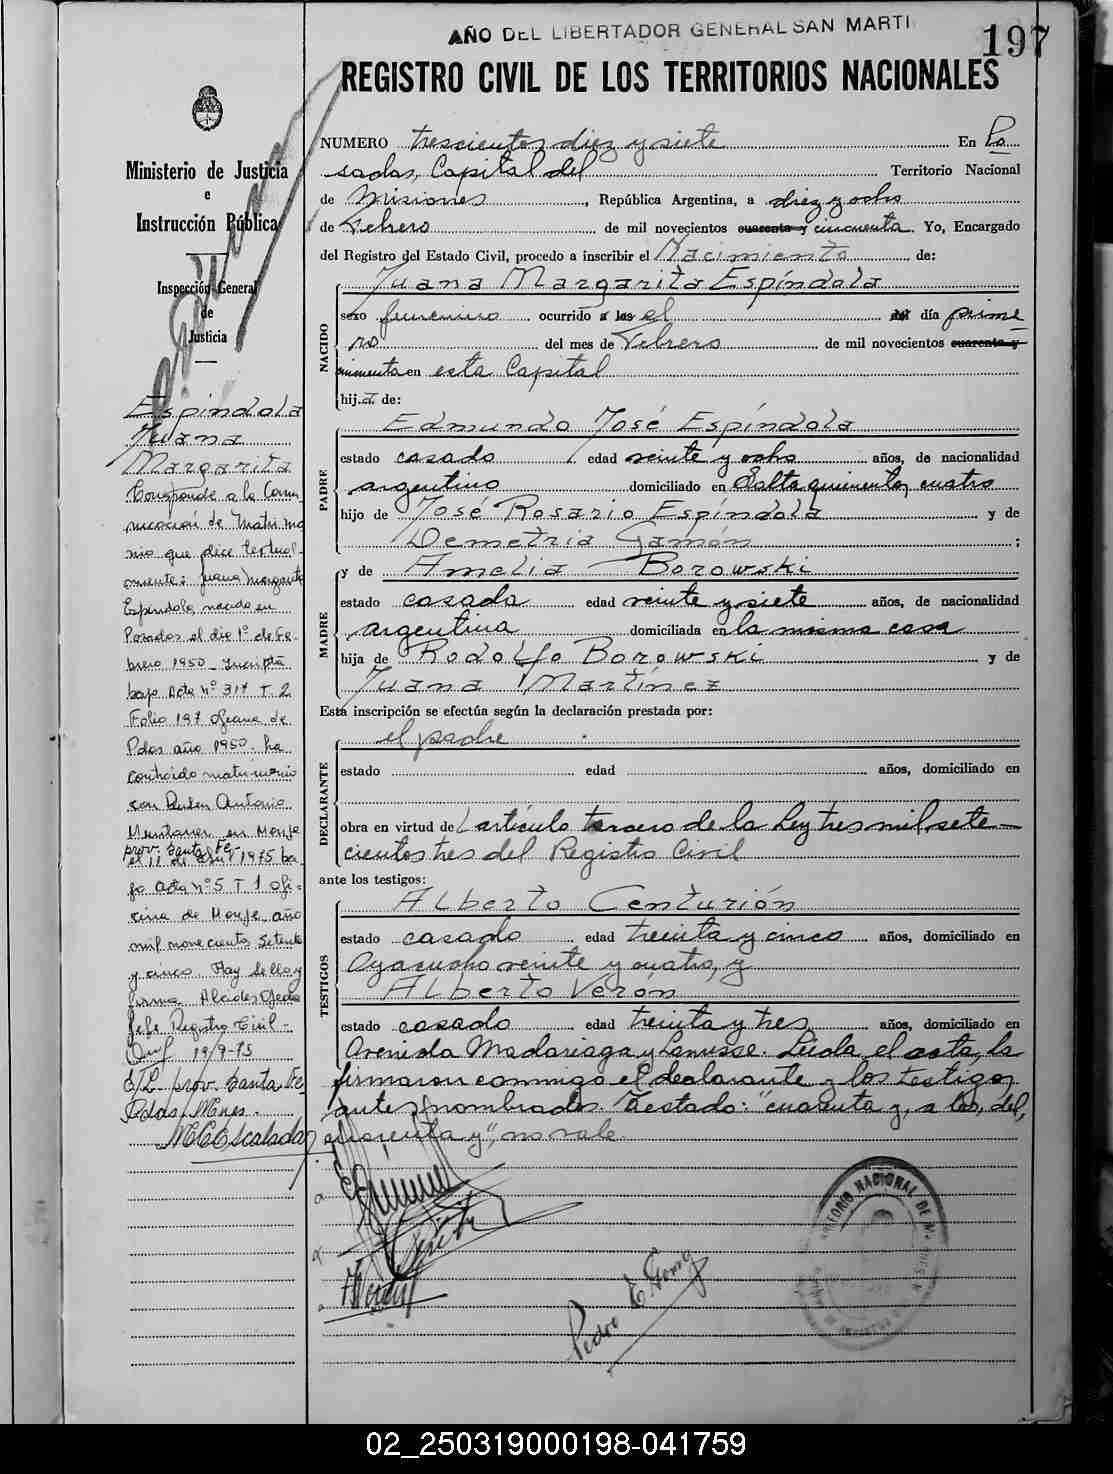 AÑO DEL LIBERTADOR GENERAL SAN MARTI
197
REGISTRO CIVIL DE LOS TERRITORIOS NACIONALES
Ministerio de Justicia
e
Instrucción Pública
Inspección General
de
Justicia
Espíndola
Juana
Margarita
Corresponde a la Comu
nicación de Matrimo
nio que dice textual-
mente: Juana Margarita
Espíndola, nacida en
Posadas el día 1º de Fe-
brero 1950 - Inscripta
bajo Acta nº 317 T. 2
Folio 197 Oficina de
Pdas año 1950 - ha
contraído matrimonio
con Ruben Antonio
en Monje
prov. Santa Fe-
el 11 de Abril 1975 ba-
jo acta nº 5 T 1 Ofi-
cina de Monje, año
mil novecientos setenta
y cinco. Hay sello y
firma Alcides Ojeda
Jefe Registro Civil -
19/9-75
E/L. prov. Santa Fe-
Pdas, Mnes.
NUMERO trescientos diez y siete En Po
sadas, Capital del Territorio Nacional
de Misiones, República Argentina, a diez y ocho
de Febrero de mil novecientos cuarenta y cincuenta. Yo, Encargado
del Registro del Estado Civil, procedo a inscribir el Nacimiento de:
Juana Margarita Espíndola
NACIDO
sexo femenino ocurrido a las el del día prime-
ro del mes de Febrero de mil novecientos cuarenta y
cincuenta en esta Capital
hij.a. de:
Edmundo José Espíndola
PADRE
estado casado edad veinte y ocho años, de nacionalidad
argentino domiciliado en Salta quinientos cuatro
hijo de José Rosario Espíndola y de
Demetria Gamón ;
y de Amelia Borowski
MADRE
estado casada edad veinte y siete años, de nacionalidad
argentina domiciliada en la misma casa
hija de Rodolfo Borowski y de
Juana Martínez
Esta inscripción se efectúa según la declaración prestada por:
el padre
DECLARANTE
estado edad años, domiciliado en
obra en virtud del artículo tercero de la Ley tres mil sete-
cientos tres del Registro Civil
ante los testigos:
Alberto Centurión
TESTIGOS
estado casado edad treinta y cinco años, domiciliado en
Ayacucho veinte y cuatro, y
Alberto Verón
estado casado edad treinta y tres años, domiciliado en
Avenida Madariaga y Lanusse. Leída el acta, la
firmaron conmigo el declarante y los testigos
antes nombrados. Testado: "cuarenta y, a las, del,
cuarenta y", no vale.
Pedro E. Gomez
02_250319000198-041759